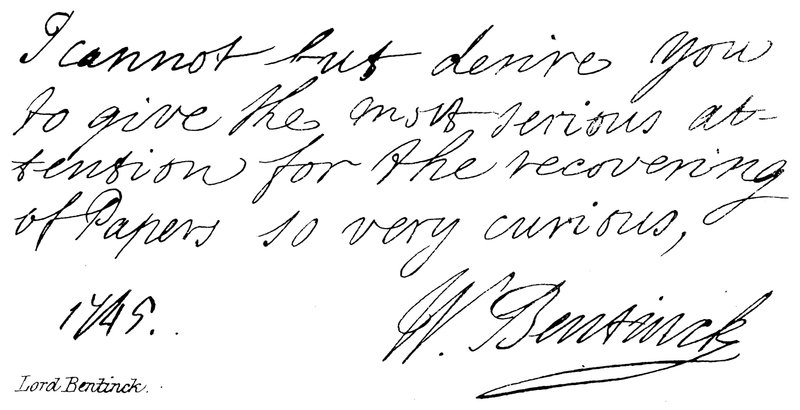 I cannot but desire you
to give the most serious at-
tention for the recovering
of Papers so very curious,
1745.
W. Bentinck
Lord Bentinck.